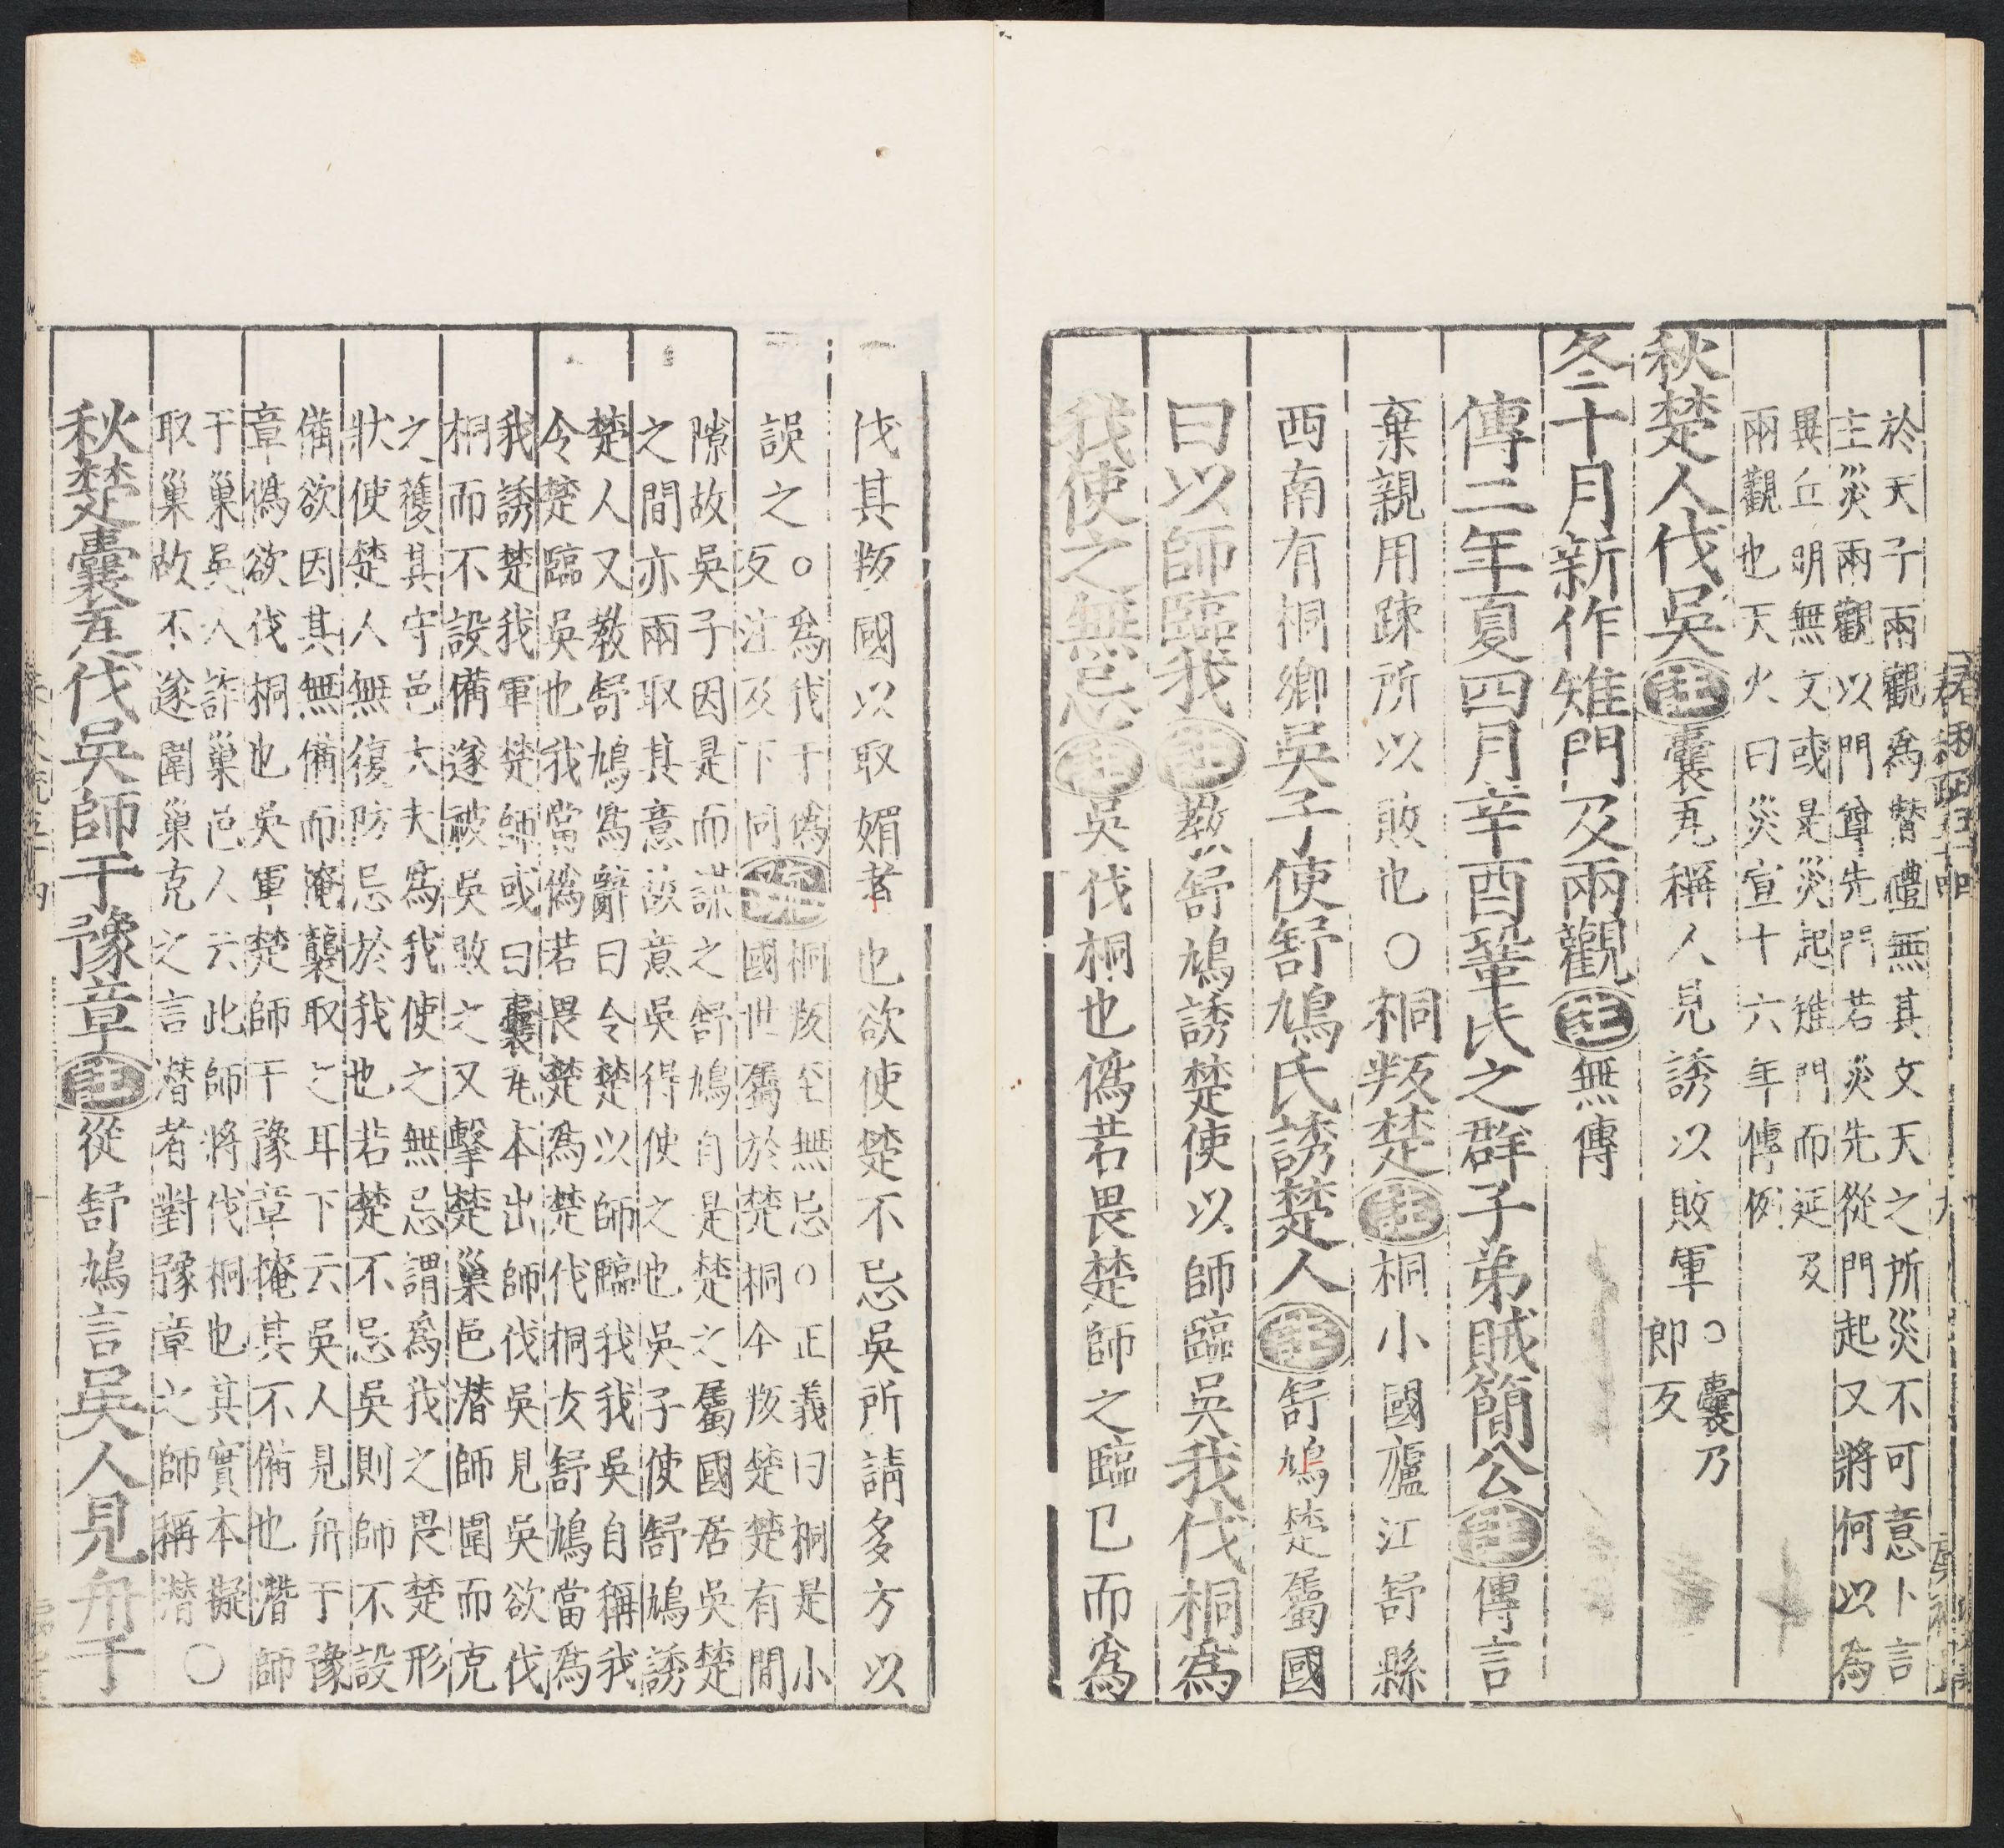 於天子兩觀爲僣禮無其文天之所災不可意卜言
主災兩觀以門尊先門若災先從門起又將何以爲
異丘明無文或是災起雉門而延及
兩觀也天火曰災宣十六年傳例
秋楚人伐吳註囊瓦稱人見誘以敗軍○囊乃
郎反
冬十月新作雉門及兩觀註無傳
傳二年夏四月辛酉鞏氏之群子弟賊簡公註傳言
棄親用踈所以敗也○桐叛楚註桐小國廬江舒縣
西南有桐鄉吳子使舒鳩氏誘楚人註舒鳩楚屬國
曰以師臨我註教舒鳩誘楚使以師臨吳我伐桐爲
我使之無忌註吳伐桐也僞若畏楚師之臨已而爲
伐其叛國以取媚者也欲使楚不忌吳所謂多方以
誤之○爲我于僞
反注及下同疏桐叛至無忌○正義曰桐是小
國世屬於楚桐今叛楚楚有間
隙故吳子因是而謀之舒鳩自是楚之屬國居吳楚
之間亦兩取其意故意吳得使之也吳子使舒鳩誘
楚人又教舒鳩爲辭曰令楚以師臨我我吳自稱我
令楚臨吳也我當僞若畏楚爲楚伐桐女舒鳩當爲
我誘楚我軍楚師或曰囊瓦本出師伐吳見吳欲伐
桐而不設備遂被吳敗之又擊楚巢邑潛師圍而克
之獲其守邑大夫爲我使之無忌謂爲我之畏楚形
狀使楚人無復防忌於我也若楚不忌吳則師不設
備欲因其無備而掩襲取之耳下云吳人見舟于豫
章僞欲伐桐也吳軍楚師于豫章掩其不備也潛師
于巢吳人詐巢邑人云此師將伐桐也其實本擬
取巢故不遂圍巢克之言潛者對豫章之師稱潛○
秋楚囊瓦伐吳師于豫章註從舒鳩言吳人見舟于